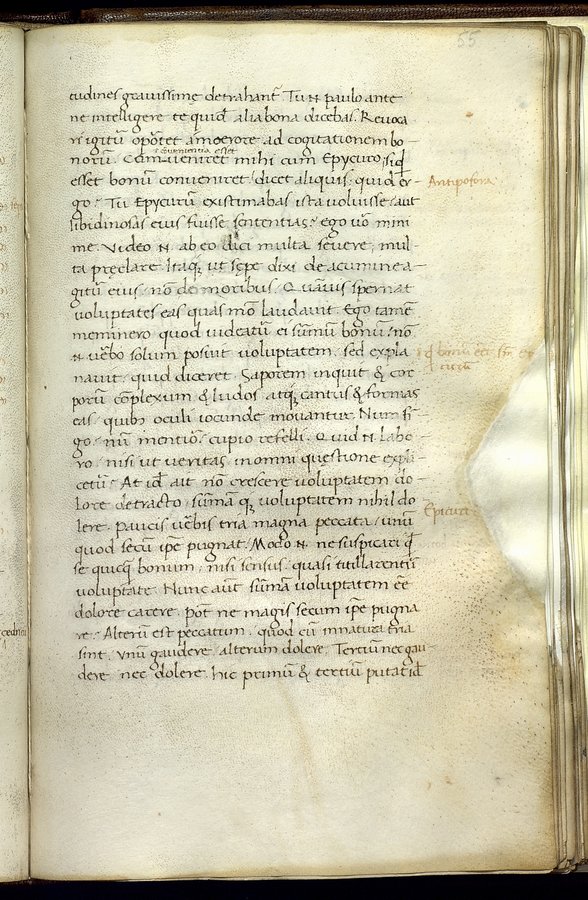 55
tudines gravissime detrahant̅. Tu N̅ paulo ante
ne intelligere te quid̅ alia bona dicebas. Revoca
ri igitu̅ oportet a moerore ad cogitationem bo
convenientia esset
noru̅. Conveniret mihi cum Epycuro, si q̅d
esset bonu̅ conveniret. dicet aliquis. quid er
Antipofora
go? Tu Epycuru̅ existimabas ista voluisse, aut
libidinosas eius fuisse sententias? ego vo̅ mini
me. Video N̅ ab eo dici multa severe, mul
ta preclare. Itaq; ut sepe dixi de acumine a
gitu̅ eius, no̅ de moribus. Quamvis spernat
voluptates eas quas mo̅ laudavit. Ego tam̅e
meminero quod videatu̅ ei su̅mu̅ bonu̅. no̅
N̅ ve̅bo solum posuit voluptatem, sed expla
navit quid diceret. Saporem inquit & cor
poru̅ co̅plexum & ludos atq; cantus & formas
eas quib; oculi iocunde moveantur. Num fi̅
go? nu̅ mentior? cupio refelli. Quid N̅ labo
ro nisi ut veritas in omni questione expli
cetu̅? At id̅ ait no̅ crescere voluptatem do
lore detracto, su̅ma̅ q; voluptatem nihil do
Epicuri
lere. paucis ve̅bis tria magna peccata, unu̅
quod secu̅ ip̅e pugnat. Modo N̅ ne suspicari q̅
se quicq̅ bonum, nisi sensus quasi titillarent̅
voluptate. Nunc aut̅ su̅ma̅ voluptatem e̅e
dolore carere. pot̅ ne magis secum ip̅e pugna
re? Alteru̅ est peccatum, quod cu̅ in natura tria
sint, unu̅ gaudere, alterum dolere, Tertiu̅ nec gau
dere nec dolere. hic primu̅ & tertiu̅ putat id̅